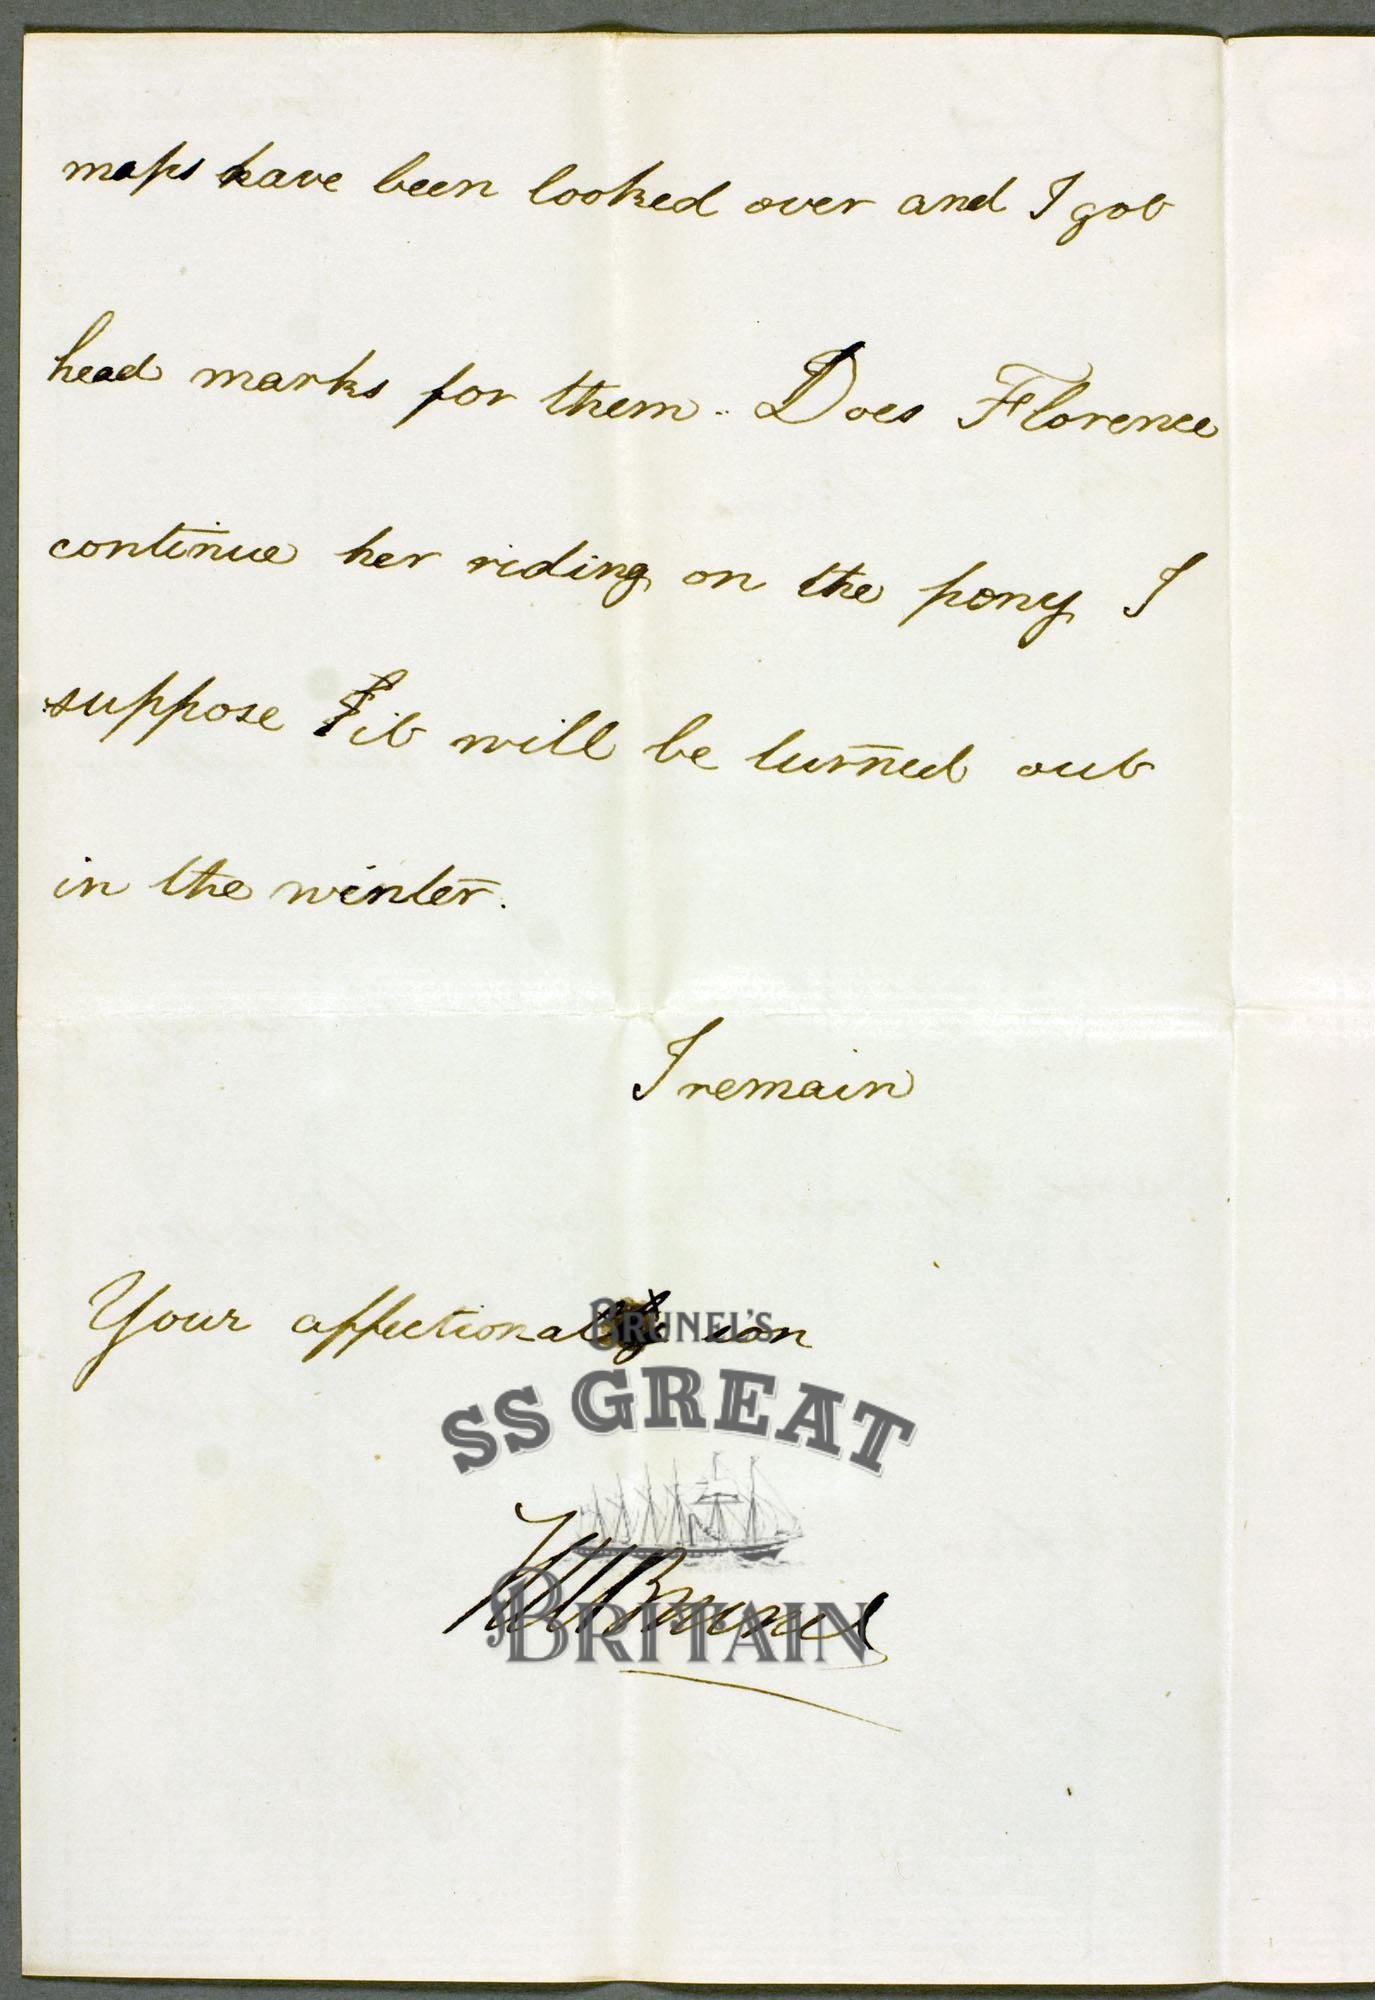 maps have been looked over and I got
head marks for them. Does Florence
continue her riding on the pony I
suppose it will be turned out
in the winter.
I remain
Your affectionate son
BRUNEL'S
SS GREAT
BRITAIN
Brunel